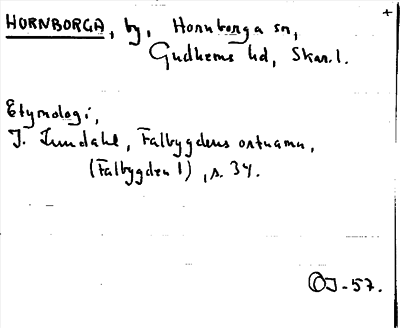 HORNBORGA, by, Hornborga sn,
Gudhems hd, Skar. l.
Etymologi,
I. Lundahl, Falbygdens ortnamn,
(Falbygden 1), s. 34.
OJ-57.